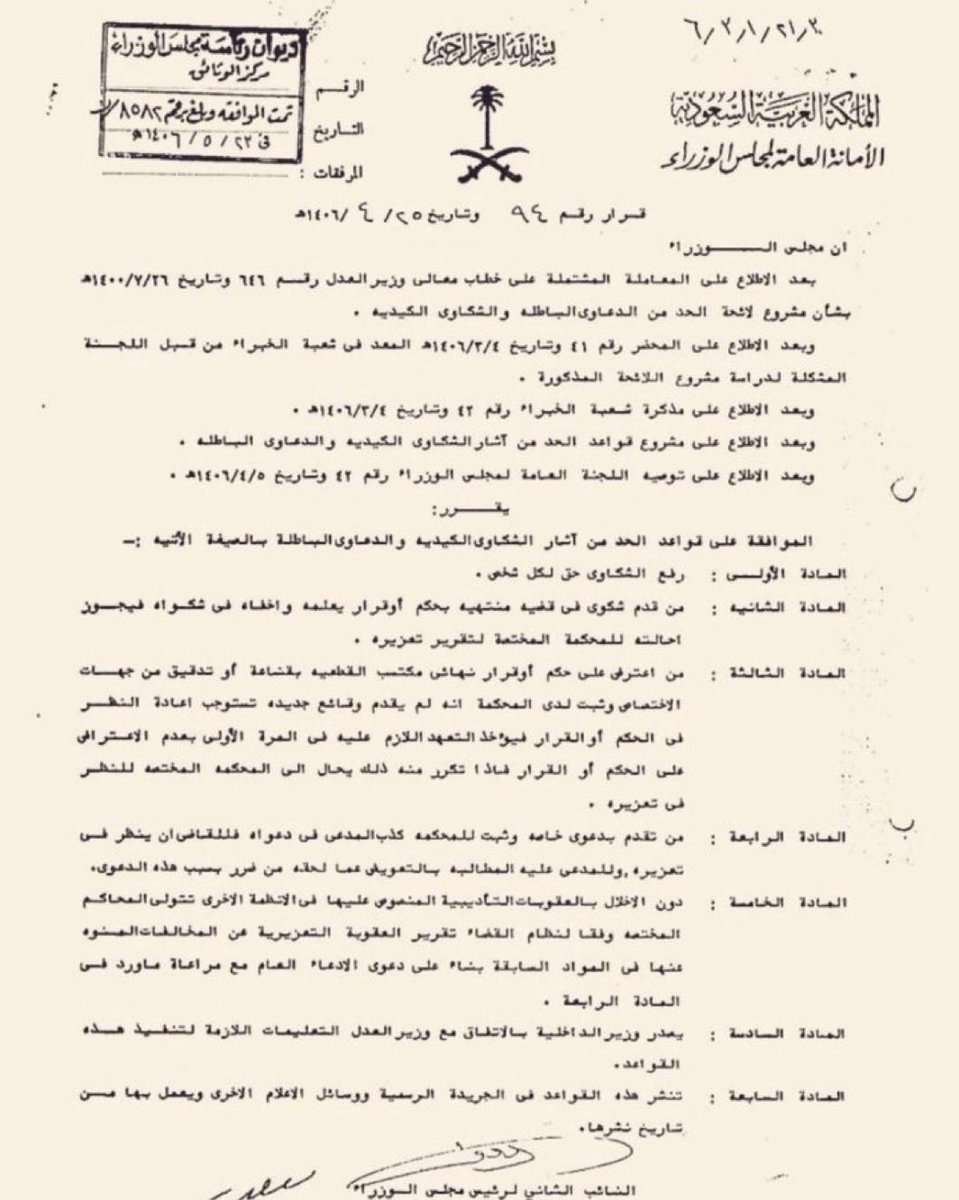 ٦/٢/١/٢١/٣
بسم الله الرحمن الرحيم
المملكة العربية السعودية
الأمانة العامة لمجلس الوزراء
ديوان رئاسة مجلس الوزراء
مركز الوثائق
تمت الموافقه وبلغ برقم ٨٥٨٢/
في ٢٣ / ٥ / ١٤٠٦هـ
الرقم
التاريخ
المرفقات :
قرار رقم ٩٤ وتاريخ ٢٥ / ٤ /١٤٠٦هـ
ان مجلس الـــوزراء
بعد الاطلاع على المعاملة المشتملة على خطاب معالى وزير العدل رقم ٦٤٦ وتاريخ ١٤٠٠/٧/٢٦هـ
بشأن مشروع لائحة الحد من الدعاوى الباطله والشكاوى الكيديه .
وبعد الاطلاع على المحضر رقم ٤١ وتاريخ ١٤٠٦/٣/٤هـ المعد فى شعبة الخبراء من قبل اللجنة
المشكلة لدراسة مشروع اللائحة المذكورة .
وبعد الاطلاع على مذكرة شعبة الخبراء رقم ٤٢ وتاريخ ١٤٠٦/٣/٤هـ .
وبعد الاطلاع على مشروع قواعد الحد من آثار الشكاوى الكيديه والدعاوى الباطله .
وبعد الاطلاع على توصيه اللجنة العامة لمجلس الوزراء رقم ٤٢ وتاريخ ١٤٠٦/٤/٥هـ .
يقـــرر:
الموافقة على قواعد الحد من آثار الشكاوى الكيديه والدعاوى الباطلة بالصيغة الأتيه :-
المادة الأولـى : رفع الشكاوى حق لكل شخص .
المادة الثانيه : من قدم شكوى فى قضيه منتهيه بحكم أوقرار يعلمه واخفاه فى شكواه فيجوز
احالته للمحكمة المختصة لتقرير تعزيره .
المادة الثالثة : من اعترض على حكم أوقرار نهائى مكتسب القطعيه بقناعة أو تدقيق من جهـات
الاختصاص وثبت لدى المحكمة انه لم يقدم وقائع جديده تستوجب اعادة النظـر
فى الحكم أوالقرار فيؤخذ التعهد اللازم عليه فى المرة الأولى بعدم الاعتـراض
على الحكم أو القرار فاذا تكرر منه ذلك يحال الى المحكمه المختصه للنظر
فى تعزيره .
المادة الرابعة : من تقدم بدعوى خاصه وثبت للمحكمه كذب المدعى فى دعواه فللقاضى ان ينظر فـى
تعزيره,وللمدعى عليه المطالبه بالتعويض عما لحقه من ضرر بسبب هذه الدعوى.
المادة الخامسة : دون الاخلال بالعقوبات التأديبية المنصوص عليها فى الانظمة الاخرى تتولى المحاكم
المختصه وفقا لنظام القضاء تقرير العقوبة التعزيرية عن المخالفات المنـوه
عنها فى المواد السابقة بناء على دعوى الادعاء العام مع مراعاة ماورد فـى
المادة الرابعة .
المادة السادسة : يصدر وزير الداخلية بالاتفاق مع وزير العدل التعليمات اللازمة لتنفيـذ هـذه
القواعد.
المادة السابعة : تنشر هذه القواعد فى الجريدة الرسمية ووسائل الاعلام الاخرى ويعمل بها مـن
تاريخ نشرها.
النائب الثانى لرئيس مجلس الـوزراء